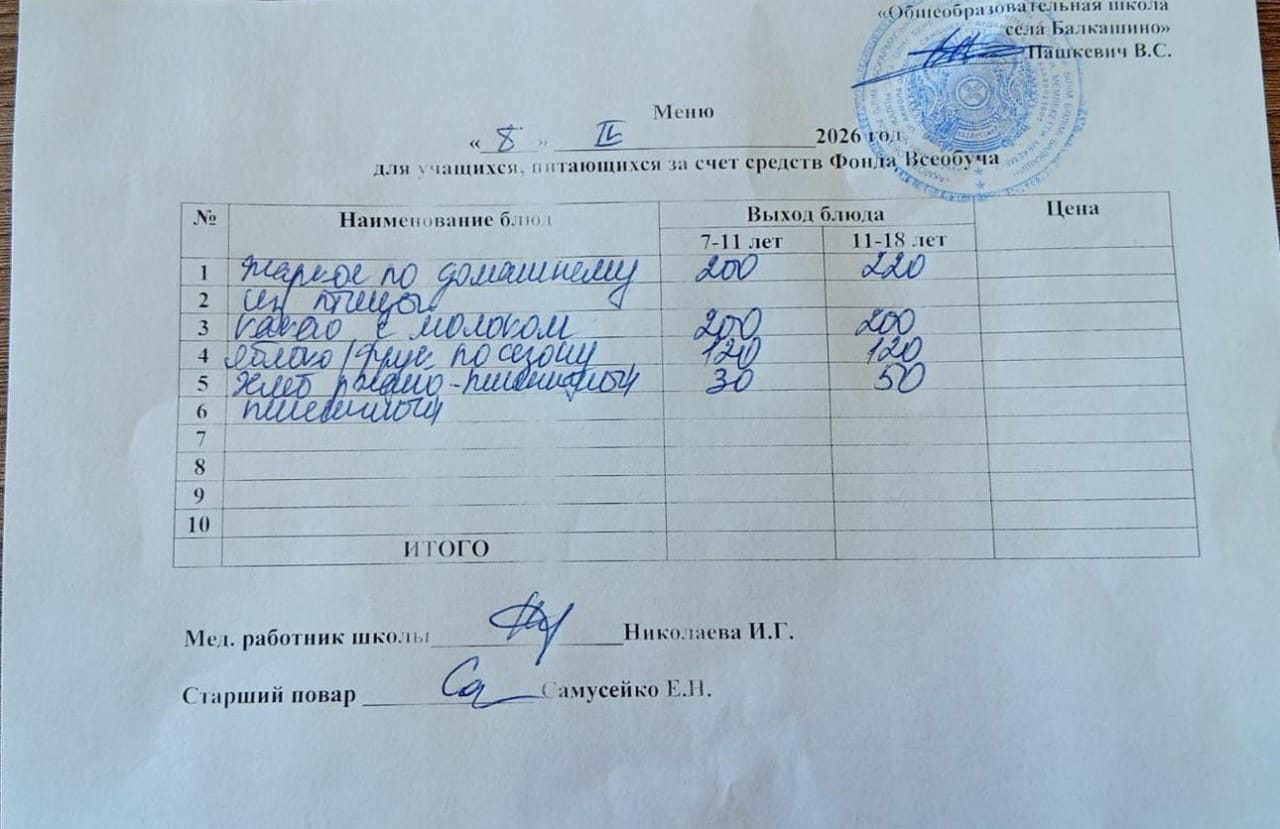 «Общеобразовательная школа
села Балкашино»
Пашкевич В.С.
Меню
« 8 » 2026 год
для учащихся, питающихся за счет средств Фонда Всеобуча
№ Наименование блюд Выход блюда Цена
7-11 лет 11-18 лет
1 жаркое по домашнему 200 220
2 из птицы
3 какао с молоком 200 200
4 яблоко/фрук по сезону 120 120
5 хлеб ржано-пшеничный 30 50
6 пшеничный
7
8
9
10
ИТОГО
Мед. работник школы Николаева И.Г.
Старший повар Самусейко Е.Н.